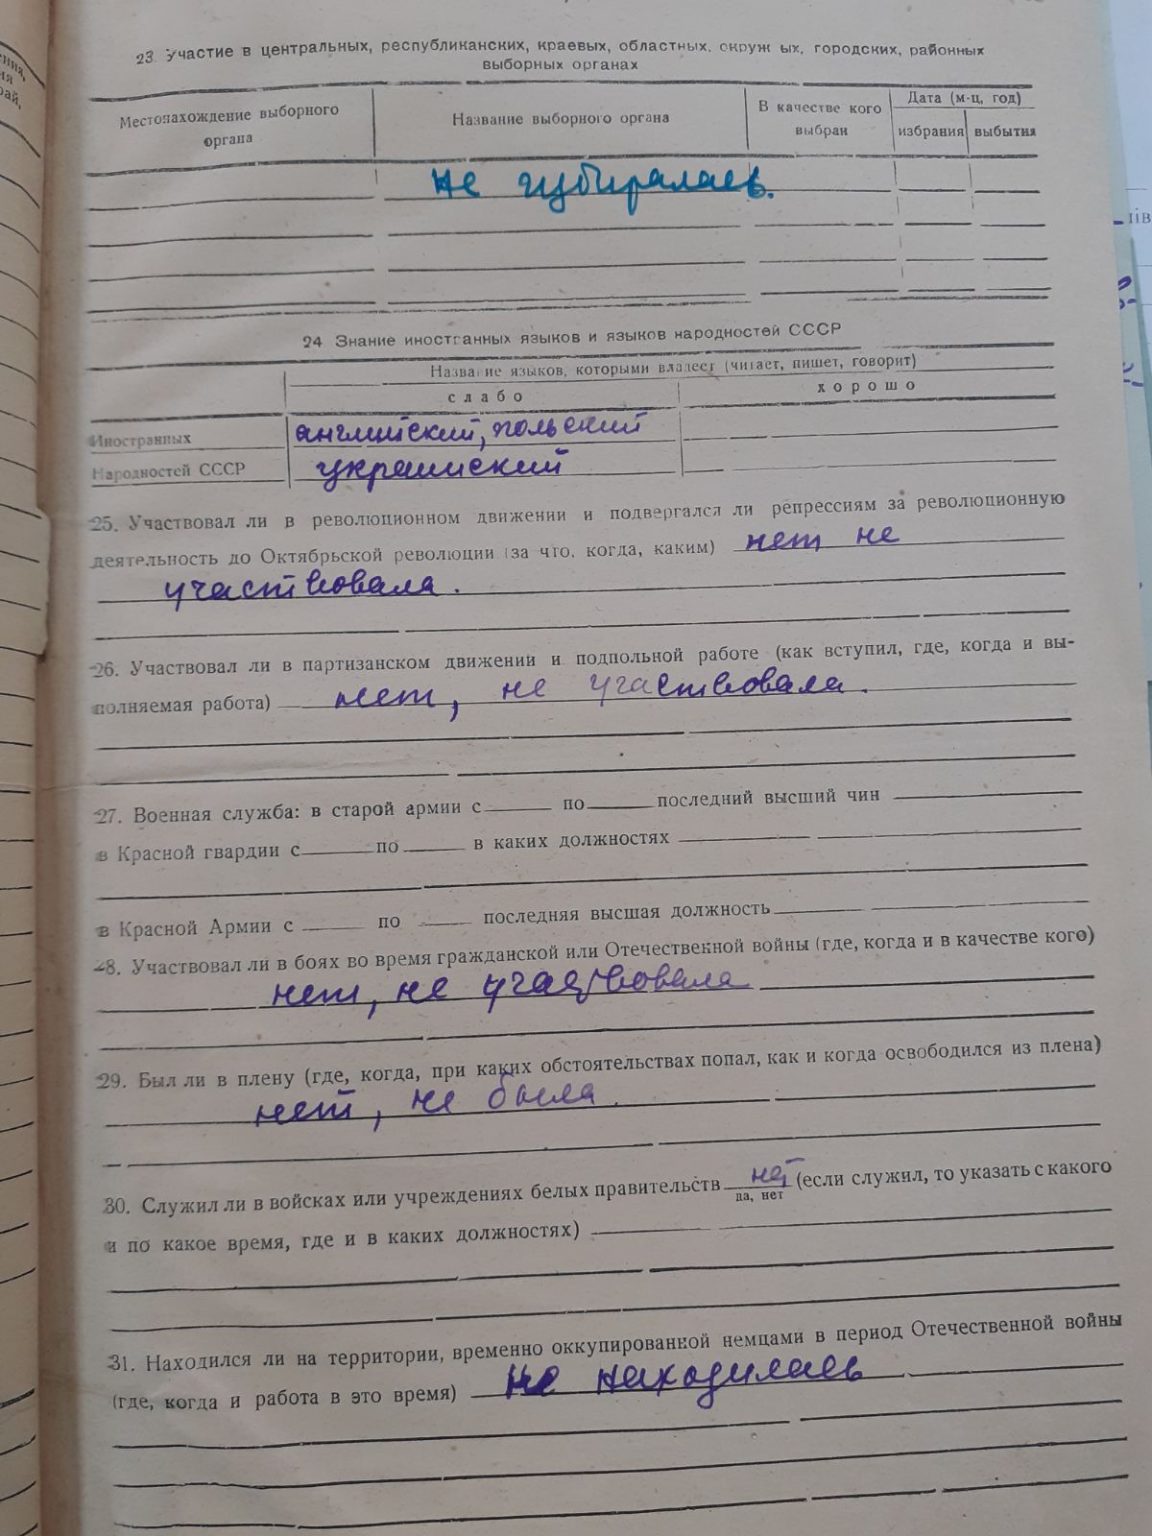 23 Участие в центральных, республиканских, краевых, областных, окруж ых, городских, районных
выборных органах
Местонахождение выборного органа
Название выборного органа
В качестве кого выбран
Дата (м-ц, год)
избрания выбытия
не избиралась.
24 Знание иностранных языков и языков народностей СССР
Название языков, которыми владеет (читает, пишет, говорит)
слабо хорошо
Иностранных английский, польский
Народностей СССР украинский
25. Участвовал ли в революционном движении и подвергался ли репрессиям за революционную
деятельность до Октябрьской революции (за что, когда, каким) нет не
участвовала.
26. Участвовал ли в партизанском движении и подпольной работе (как вступил, где, когда и вы-
полняемая работа) нет, не участвовала.
27. Военная служба: в старой армии с по последний высший чин
в Красной гвардии с по в каких должностях
в Красной Армии с по последняя высшая должность
28. Участвовал ли в боях во время гражданской или Отечественной войны (где, когда и в качестве кого)
нет, не участвовала
29. Был ли в плену (где, когда, при каких обстоятельствах попал, как и когда освободился из плена)
нет, не была.
30. Служил ли в войсках или учреждениях белых правительств нет (если служил, то указать с какого
да, нет
и по какое время, где и в каких должностях)
31. Находился ли на территории, временно оккупированной немцами в период Отечественной войны
(где, когда и работа в это время) не находилась